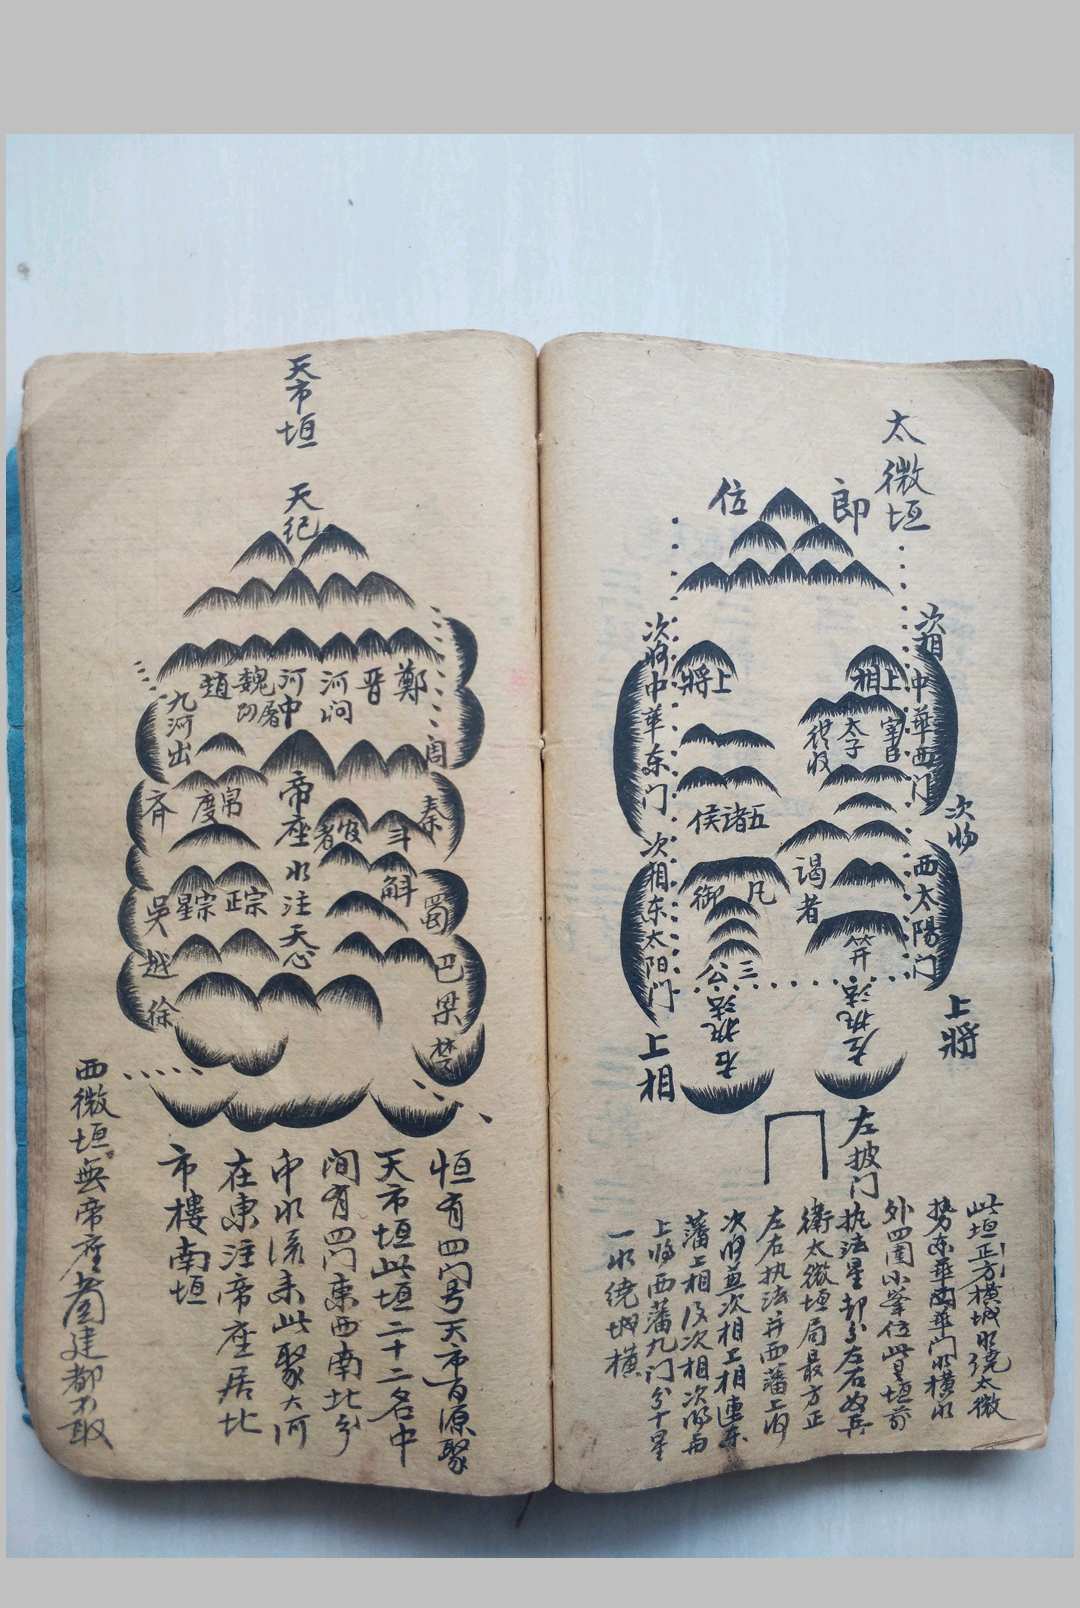 太微垣
郎位
次相
次将
上將
上相
中華西门
中華东门
太子
次将
五諸侯
次相
西太陽门
东太阳门
謁者
凡
御
三公
上將
上相
左执法
右执法
左掖门
此垣正方横城水繞太微
势东華西華门水横水
外四圍小峯位此是垣前
执法星却分左右如兵
衛太微垣局最方正
左右执法并西藩上将
次将并次相上相連东
藩上相及次相次将与
上将西藩九门分十星
一水绕城横
天市垣
天纪
鄭
晋
河间
河中
魏
趙
九河出
屠
周
秦
帝座水注天心
帛度
斉
斗
者
斛
蜀
宗正
宗星
吴
越
徐
巴
梁
楚
恒有四门号天市百源聚
天市垣此垣二十二名中
间有四门東西南北分
中水流来此聚大河
在東注帝座居北
市樓南垣
西微垣無帝座
建都不敢